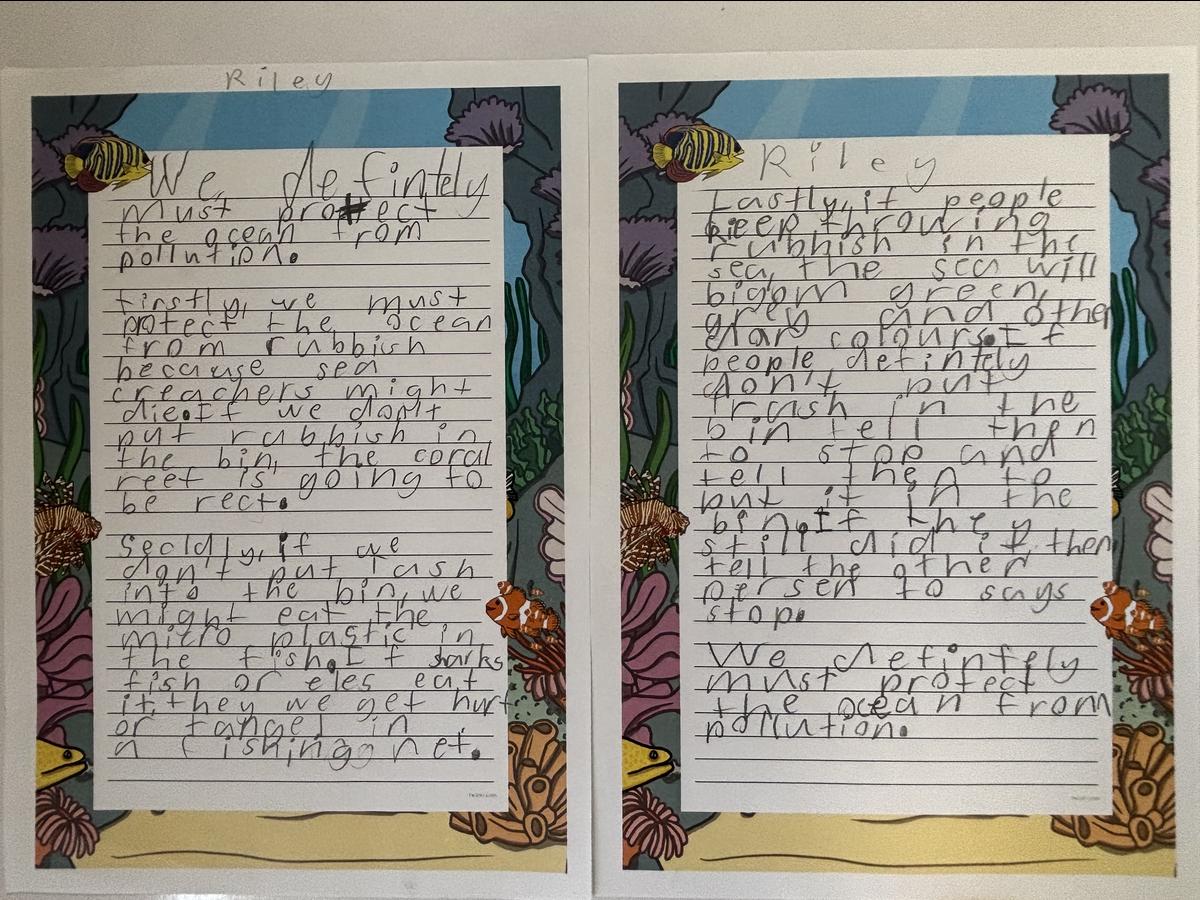 Riley
We defintely
must protect
the ocean from
pollution.
firstly, we must
protect the ocean
from rubbish
because sea
creachers might
die.If we don't
put rubbish in
the bin, the coral
reef is going to
be rect.
Secldly, if we
don't put rash
into the bin, we
might eat the
mitro plastic in
the fish.If sharks
fish or eles eat
it, they we get hurt
or tangel in
a fishing net.
Riley
Lastly, if people
keep throwing
rubbish in the
sea, the sea will
bigom green,
grey and other
dark colours.If
people defintely
don't put
trash in the
bin tell then
to stop and
tell then to
put it in the
bin.If they
still did it, then
tell the other
persen to says
stop.
We defintely
must protect
the ocean from
pollution.